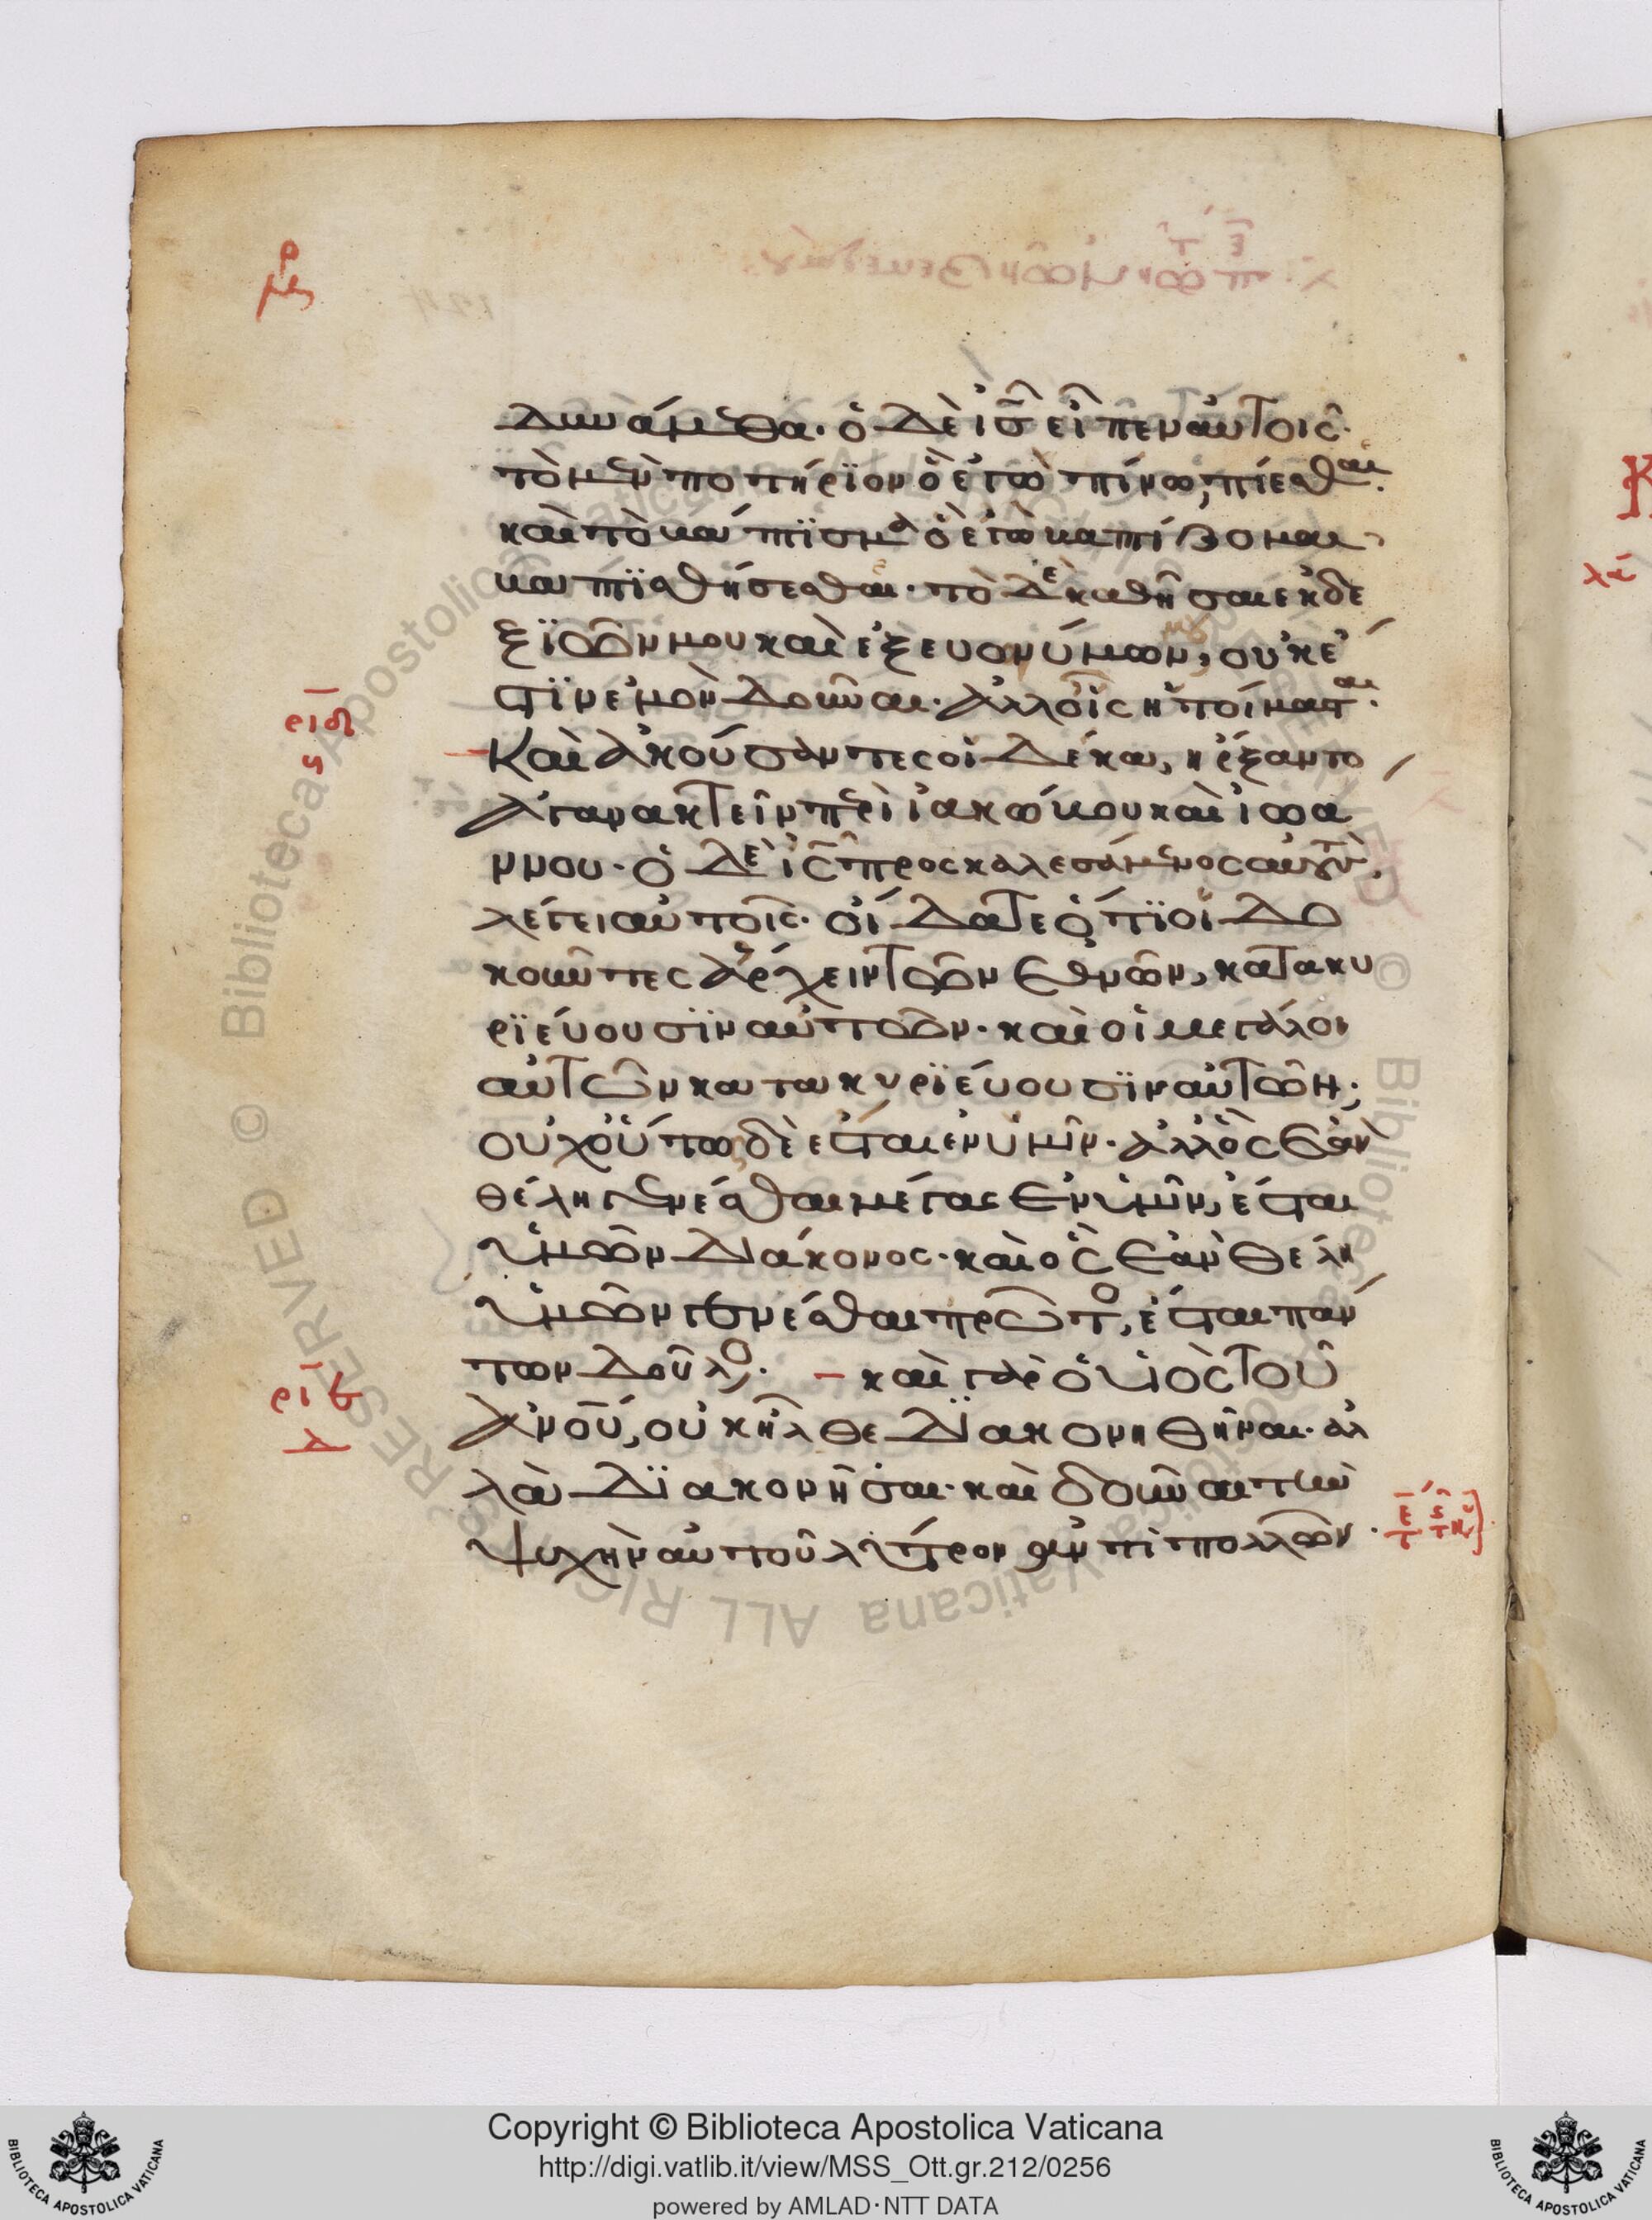 δυνάμεθα· ὁ δὲ ἰς̄ εἶπεν αὐτοῖς·
τὸ μὲν ποτήριον ὃ ἐγὼ πίνω, πίεσθαι·
καὶ τὸ βάπτισμα ὃ ἐγὼ βαπτίζομαι
βαπτισθήσεσθαι· τὸ δὲ καθῆσαι ἐκ δε
ξιῶν μου καὶ ἐξ εὐωνύμων, οὐκ έ
στιν ἐμὸν δοῦναι· ἀλλ' οἷς ἡτοίμασται·
Καὶ ἀκούσαντες οἱ δέκα, ἤρξαντο
ἀγανακτεῖν περὶ ἰακώβου καὶ ἰωά
ννου· ὁ δὲ ἰς̄ προσκαλεσάμενος αὐτοὺς,
λέγει αὐτοῖς· οἴδατε ὅτι οἱ δο
κοῦντες ἄρχειν τῶν ἐθνῶν, κατακυ
ριεύουσιν αὐτῶν· καὶ οἱ μεγάλοι
αὐτῶν κατακυριεύουσιν αὐτῶν·
οὐχ οὕτως δὲ ἔσται ἐν ὑμῖν· ἀλλ' ὃς ἐὰν
θέλη γενέσθαι μέγας ἐν ὑμῖν, ἔσται
ὑμῶν διάκονος· καὶ ὃς ἐὰν θέλη
ὑμῶν γενέσθαι πρῶτος, ἔσται πάν
των δοῦλος· καὶ γὰρ ὁ υἱὸς τοῦ
ἀνοῦ, οὐκ ἦλθε διακονηθῆναι· ἀλ
λὰ διακονῆσαι· καὶ δοῦναι τὴν
ψυχὴν αὐτοῦ λύτρον ἀντὶ πολλῶν·
ριδ
ς
ριε
δ
Copyright © Biblioteca Apostolica Vaticana
http://digi.vatlib.it/view/MSS_Ott.gr.212/0256
powered by AMLAD·NTT DATA
BIBLIOTECA APOSTOLICA VATICANA
BIBLIOTECA APOSTOLICA VATICANA